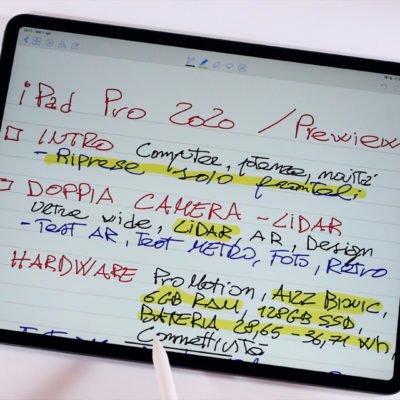 iPad Pro 2020 / Preview
INTRO Computer, potenza, novità
- Riprese solo frontali
DOPPIA CAMERA - LiDAR
ultra wide, LiDAR, AR, Design
- Test AR, Test METRO, FOTO, Retro
HARDWARE ProMotion, A12Z Bionic,
6GB RAM, 128GB SSD,
BATTERIA 28,65 - 36,71 Wh,
Connettività